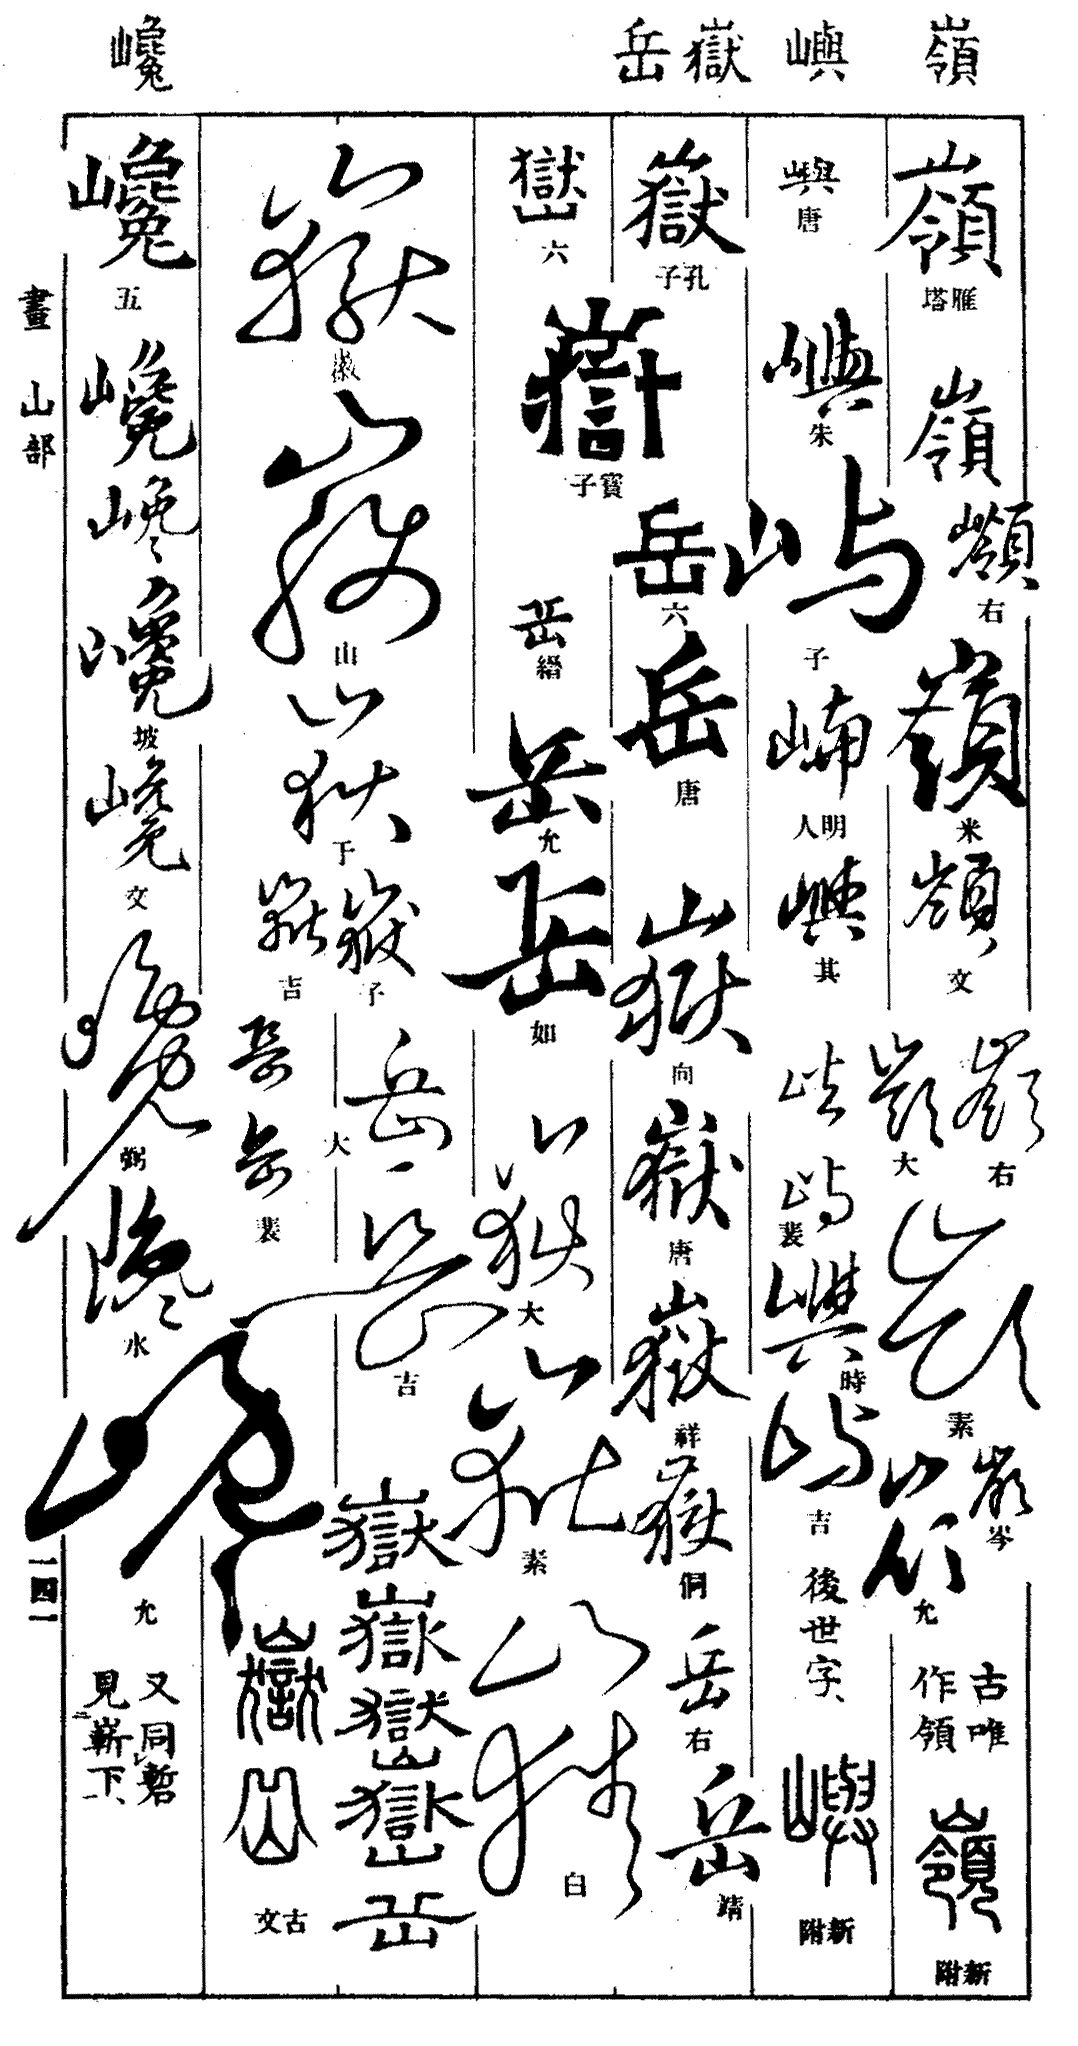 嶺
嶼
嶽
岳
巉
嶺
雁塔
嶺
嶺
右
嶺
米
嶺
文
嶺
右
嶺
大
嶺
素
嶺
岑
嶺
允
古唯
作領
嶺
新附
嶼
唐
嶼
朱
屿
子
明人
嶼
其
裴
嶼
時
吉
後世字、
嶼
新附
嶽
孔子
岳
六
岳
唐
嶽
向
嶽
唐
嶽
祥
嶽
侗
岳
右
岳
靖
嶽
六
寶子
岳
縉
岳
允
岳
如
嶽
大
嶽
素
嶽
白
嶽
徽
嶽
山
嶽
于
嶽
子
嶽
吉
岳
大
岳
岳
裴
岳
吉
嶽
嶽
嶽
嶽
岳
嶽
古文
巉
五
巉
巉
巉
坡
巉
文
巉
弼
巉
水
巉
允
又同暫
見嶄下、
畫 山部
一四一